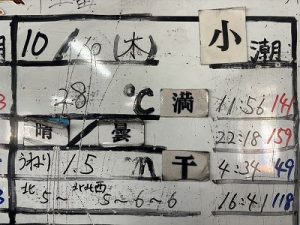 10/16(木) 小潮
28 ℃ 満 11:56 141
晴/曇 22:18 159
うねり 1.5 m 干 4:34 49
北 5~ 北北西 5~6~6 16:41 118